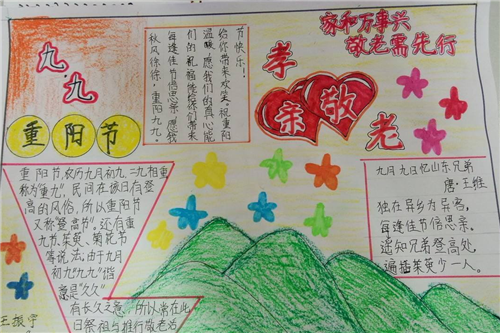 家和万事兴
敬老需先行
九.九
重阳节
节快乐!
给你带来欢笑:祝重阳
温暖,愿我们的真心能
们的祝福能给你们带来
每逢佳节倍思亲,愿我
秋风徐徐,重阳九九。
孝
亲
敬
老
重阳节,农历九月初九,二九相重
称为"重九",民间在该日有登
高的风俗,所以重阳节
又称"登高节"。还有重
九节、茱萸、菊花节
等说法。由于九月
初九"九九"谐
意是"久久"
有长久之意,所以常在此
日祭祖与推行敬老活
九月九日忆山东兄弟
唐·王维
独在异乡为异客,
每逢佳节倍思亲。
遥知兄弟登高处,
遍插茱萸少一人。
王振宇